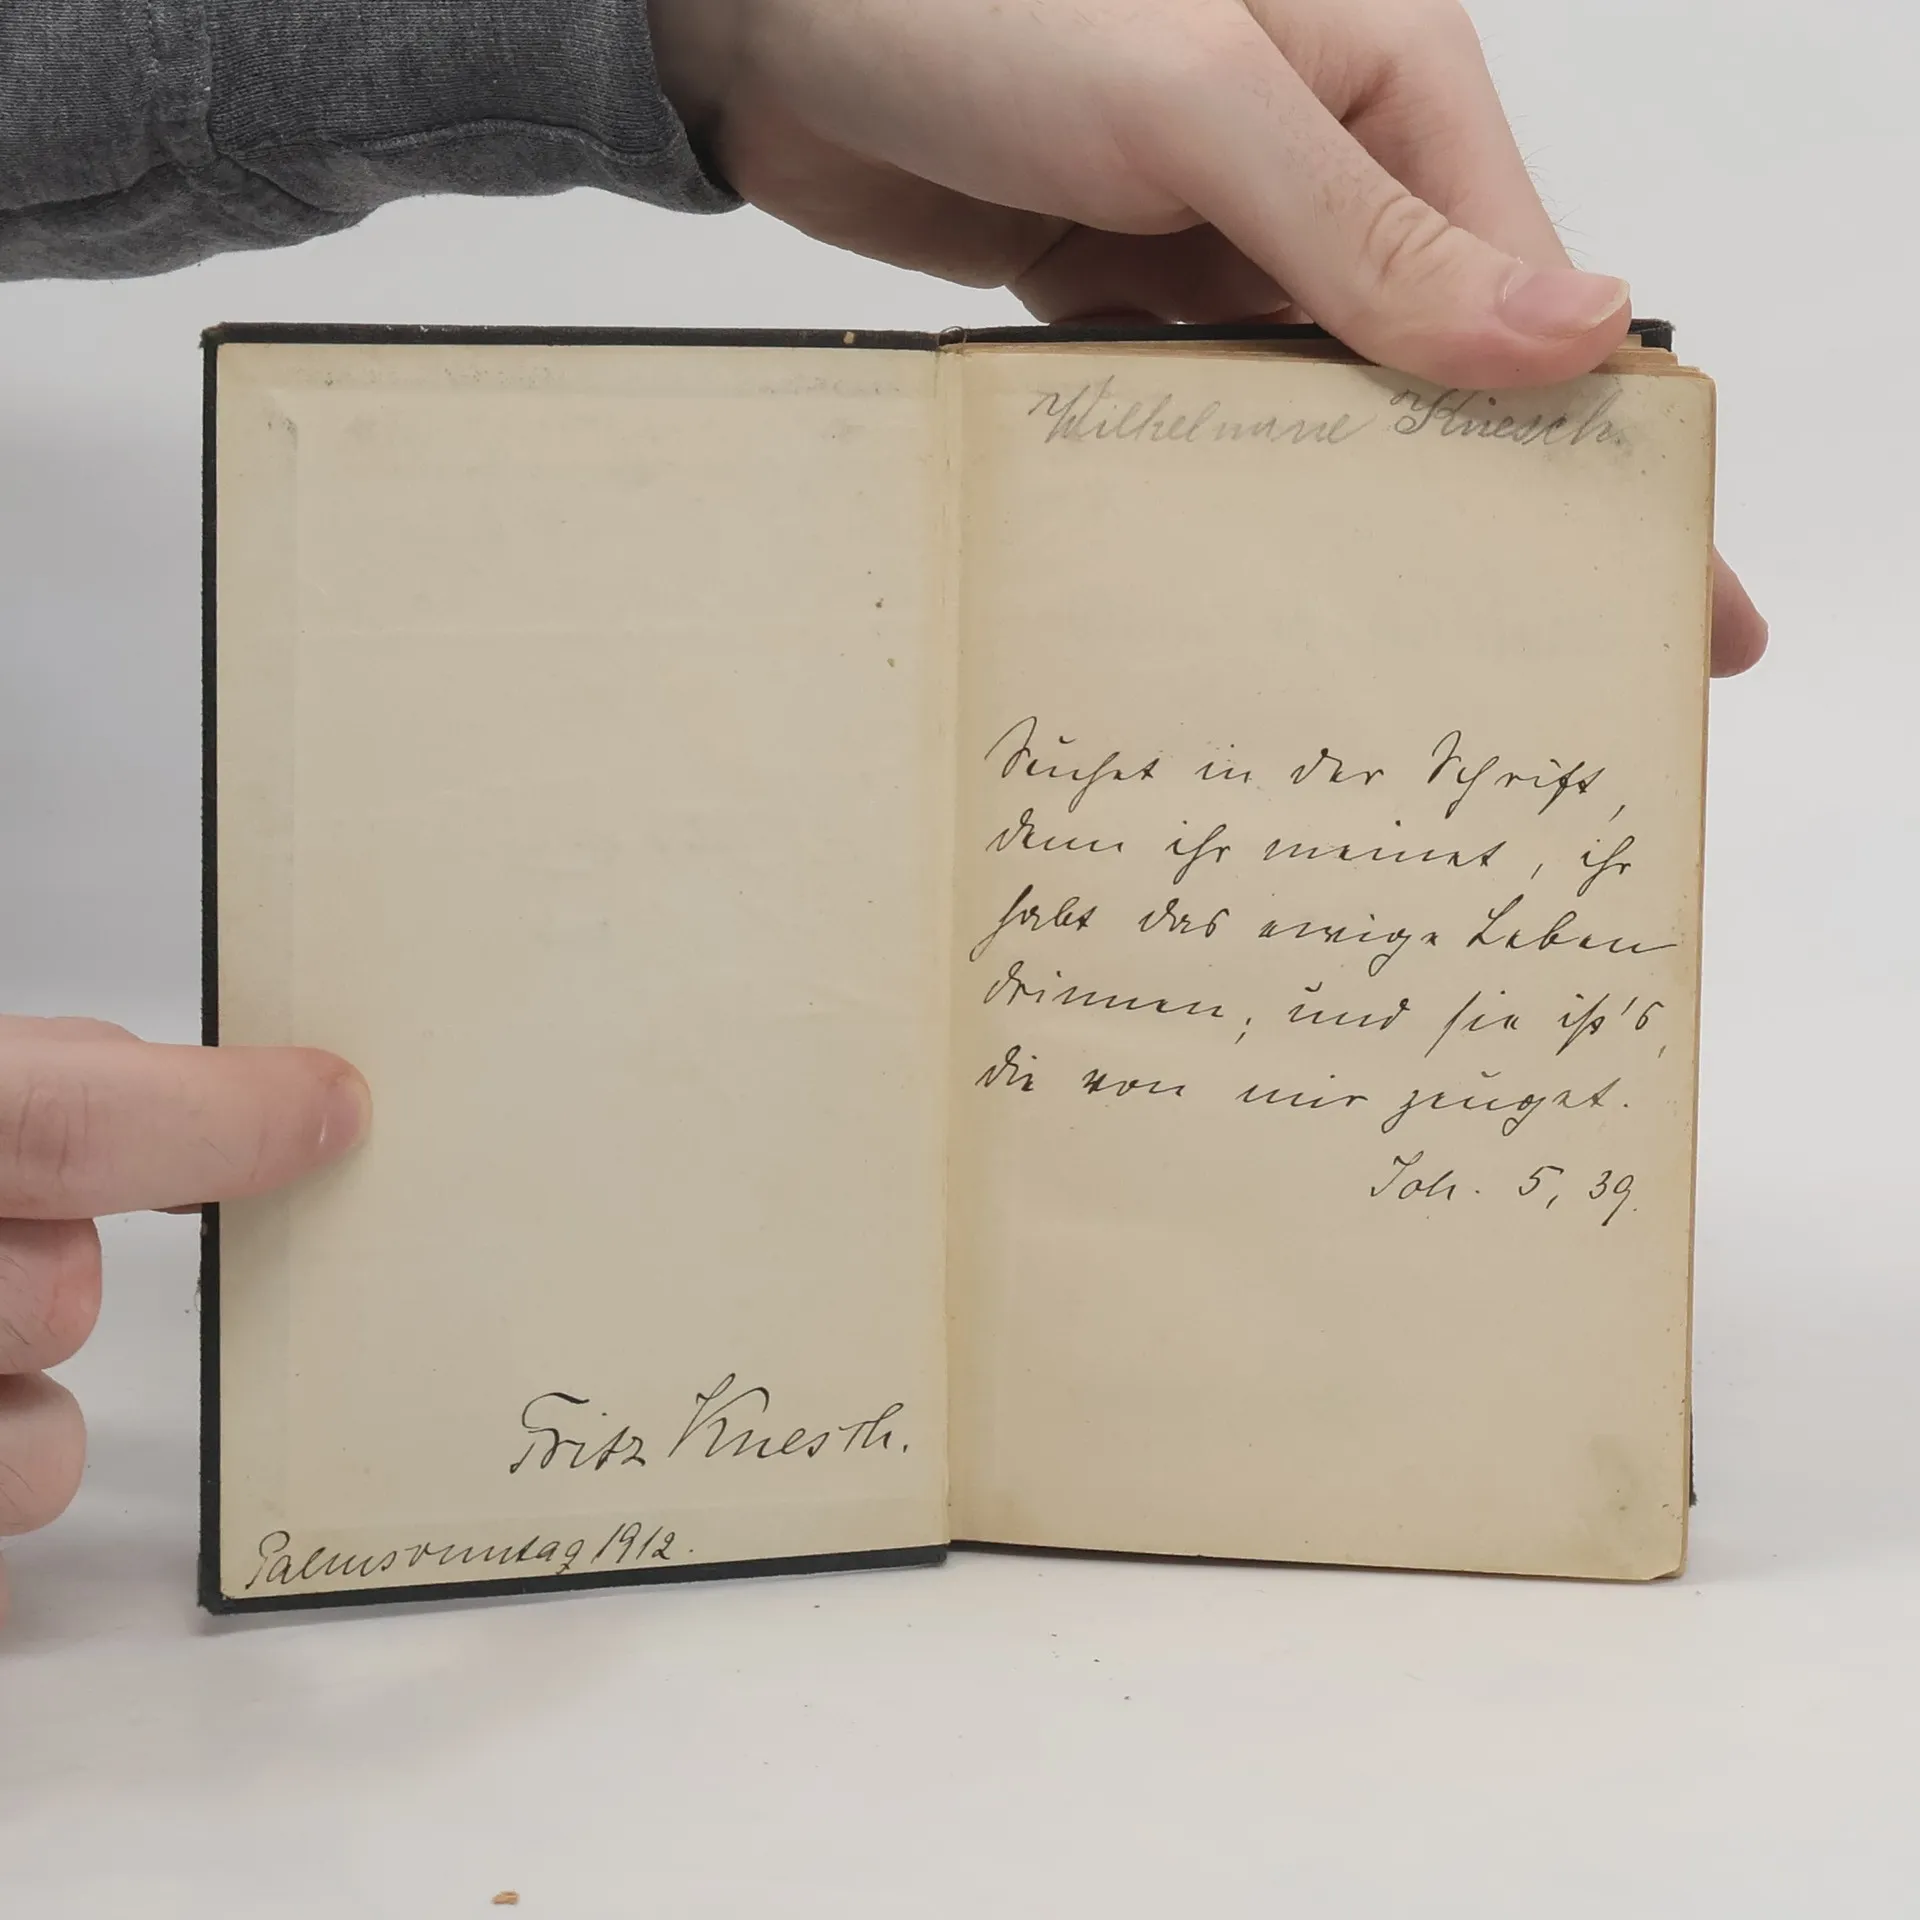 Fritz Knesch.
Palmsonntag 1912.
Wilhelmine Knesch.
Suchet in der Schrift,
denn ihr meinet, ihr
habt das ewige Leben
drinnen; und sie ist's,
die von mir zeuget.
Joh. 5, 39.